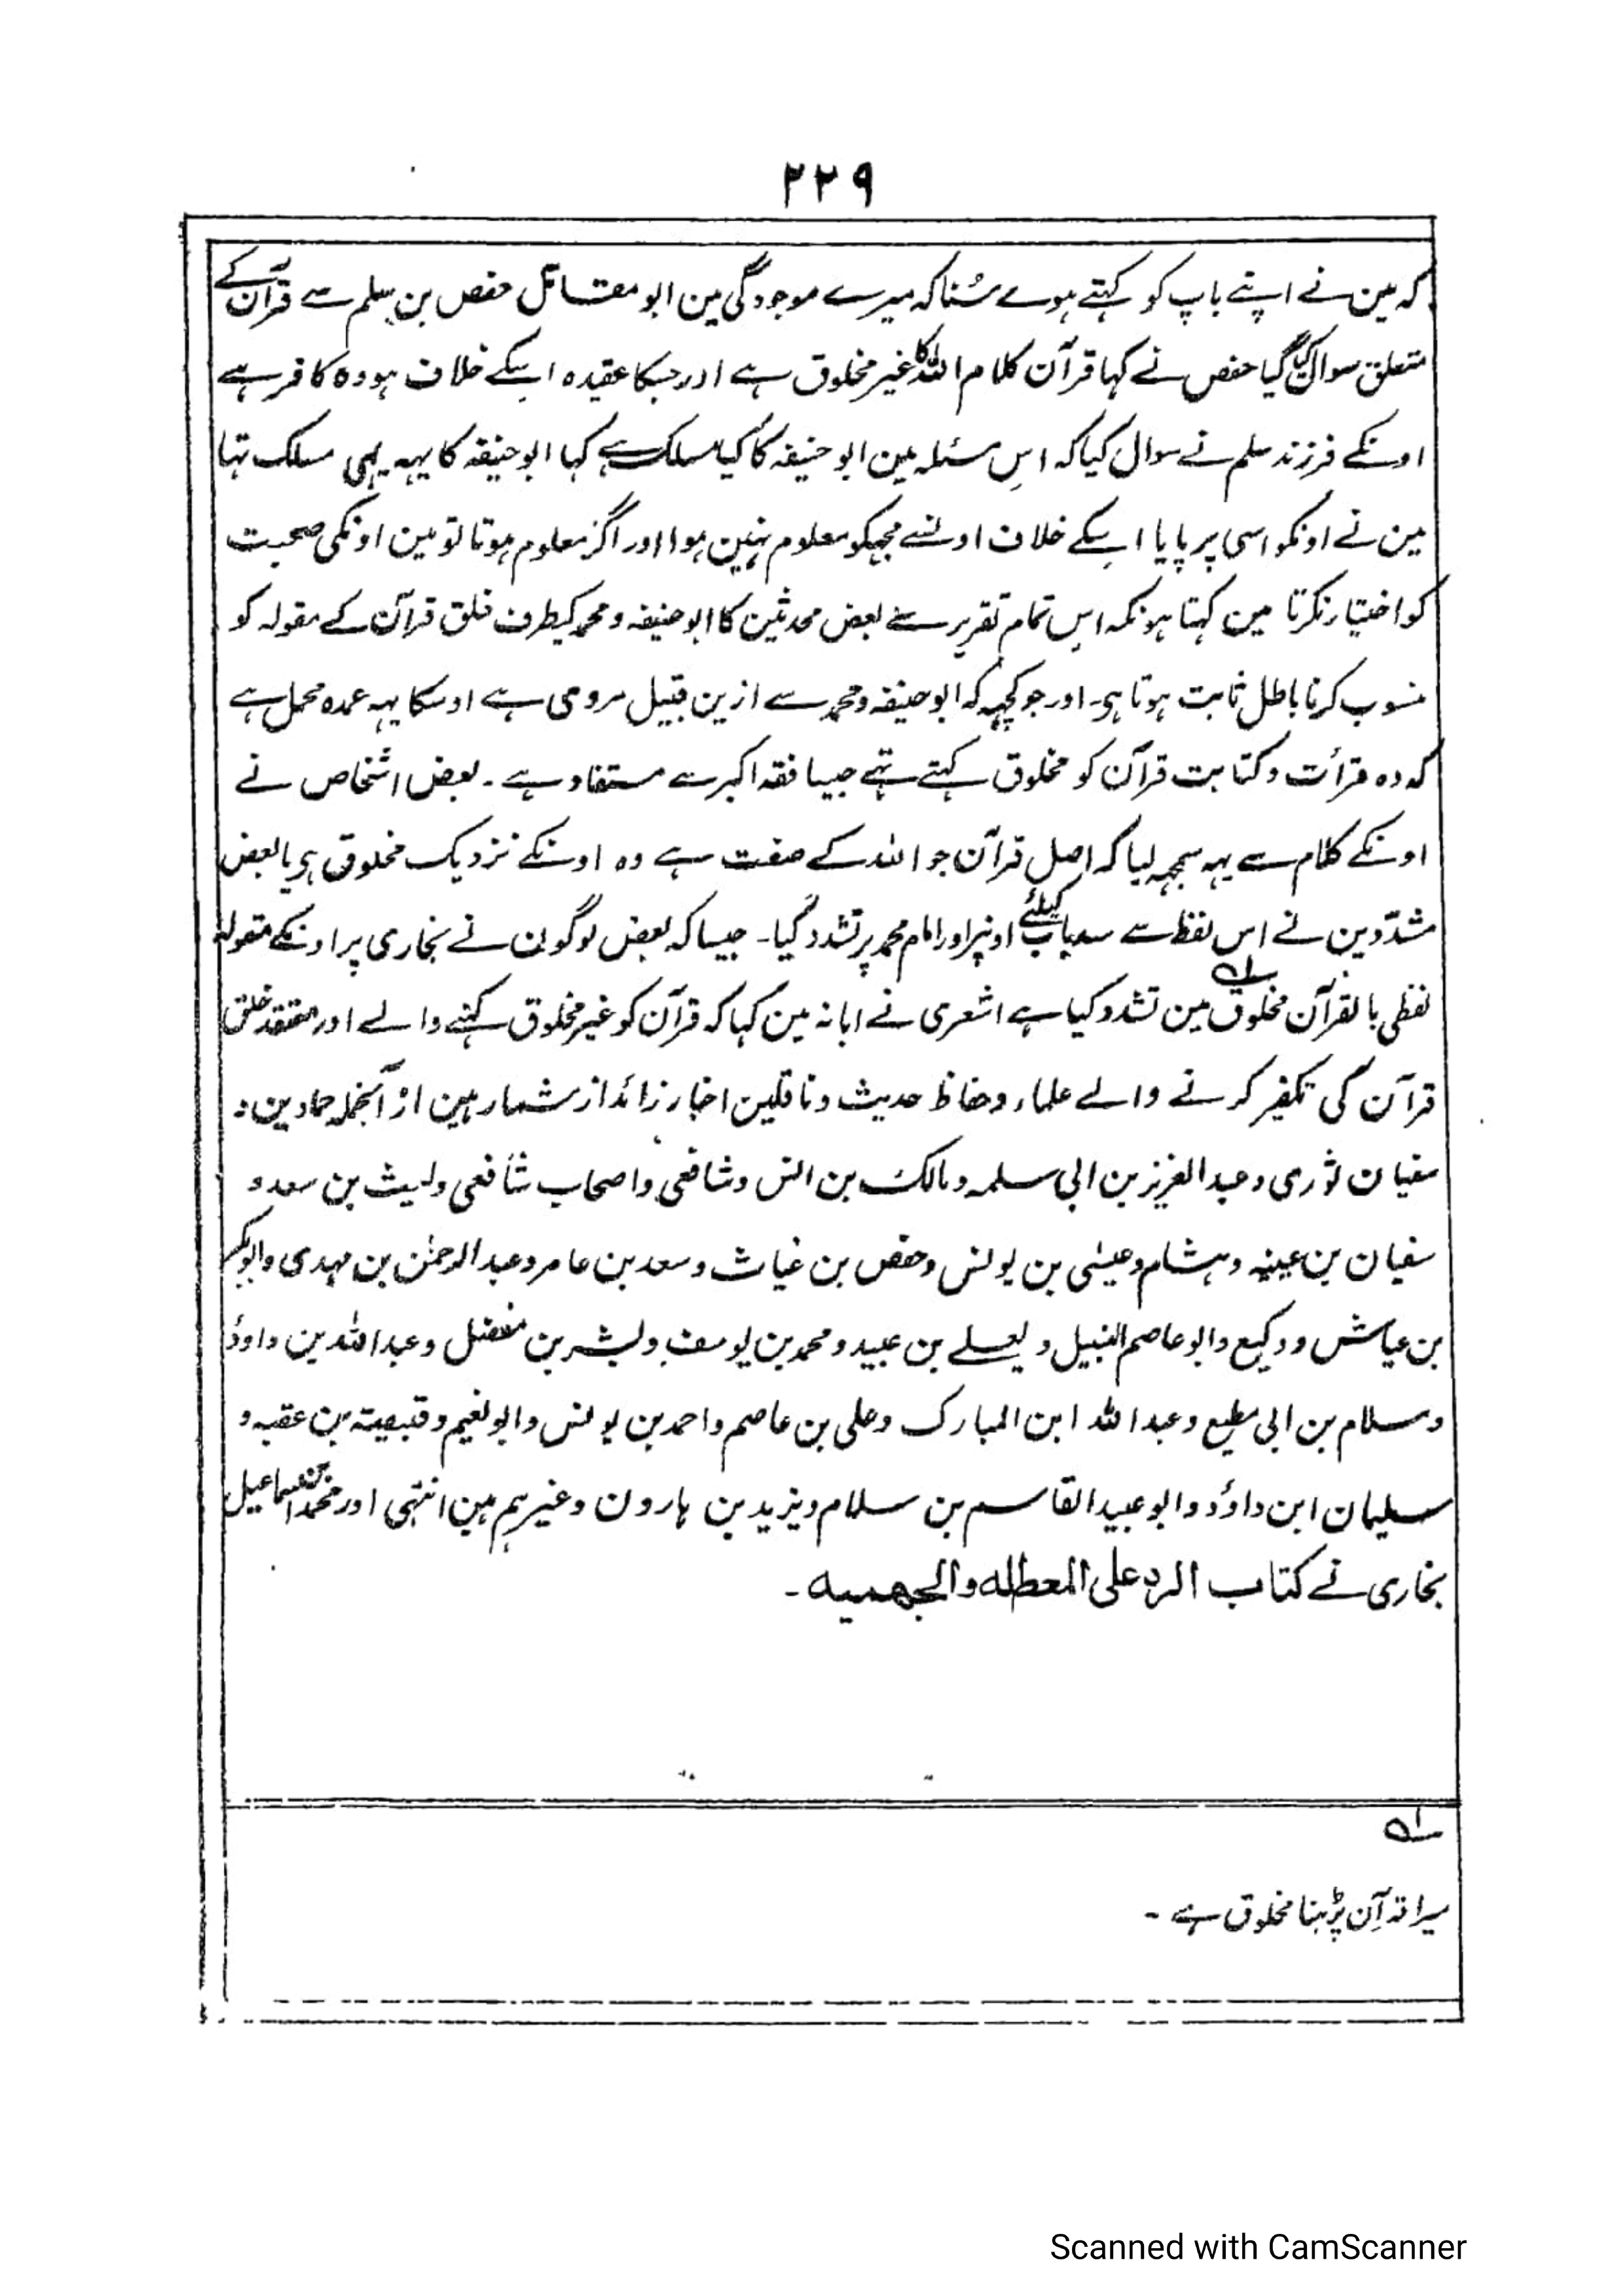 ۲۲۹
کہ مین نے اپنے باپ کو کہتے ہوے سُنا کہ میرے موجودگی مین ابو مقاتل حفص بن سلم سے قرآن کے
متعلق سوال کیا گیا حفص نے کہا قرآن کلام اللہ کا غیر مخلوق ہے اور جسکا عقیدہ اسکے خلاف ہو وہ کافر ہے
اونکے فرزند سلم نے سوال کیا کہ اس مسئلہ مین ابو حنیفہ کا کیا مسلک ہے کہا ابو حنیفہ کا یہہ یہی مسلک تہا
مین نے اونکو اسی پر پایا اسکے خلاف اونسے مجہکو معلوم نہین ہوا اور اگر معلوم ہوتا تو مین اونکی صحبت
کو اختیار نکرتا مین کہتا ہونکہ اس تمام تقریر سے بعض محدثین کا ابو حنیفہ و محمد کیطرف خلق قرآن کے مقولہ کو
منسوب کرنا باطل ثابت ہوتا ہی۔ اور جو کچہہ کہ ابو حنیفہ و محمد سے ازین قبیل مروی ہے اوسکا یہہ عمدہ محمل ہے
کہ وہ قرأت و کتابت قرآن کو مخلوق کہتے تہے جیسا فقہ اکبر سے مستفاد ہے ۔ بعض اشخاص نے
اونکے کلام سے یہہ سمجہہ لیا کہ اصل قرآن جو اللہ کے صفت ہے وہ اونکے نزدیک مخلوق ہی یا بعض
مشدّدین نے اس لفظ سے سدباب کیلئے اونپر اور امام محمد پر تشدد کیا۔ جیسا کہ بعض لوگون نے بخاری پر اونکے مقولہ
لفظی بالقرآن مخلوق ؁۱ مین تشدد کیا ہے اشعری نے ابانہ مین کہا کہ قرآن کو غیر مخلوق کہنے والے اور معتقد خلق
قرآن کی تکفیر کرنے والے علماء و حفاظ حدیث و ناقلین اخبار زائد از شمار ہین از آنجملہ حمادین:
سفیان ثوری و عبد العزیز بن ابی سلمہ و مالک بن انس و شافعی و اصحاب شافعی و لیث بن سعد و
سفیان بن عیینہ و ہشام و عیسٰی بن یونس و حفص بن غیاث و سعد بن عامر و عبد الرحمٰن بن مہدی و ابوبکر
بن عیاش و وکیع و ابو عاصم النبیل و یعلے بن عبید و محمد بن یوسف و بشر بن مفضل و عبد اللہ بن داوٗد
و سلام بن ابی مطیع و عبد اللہ ابن المبارک و علی بن عاصم و احمد بن یونس و ابو نعیم و قبیصتہ بن عقبہ و
سلیمان ابن داؤد و ابو عبید القاسم بن سلام و یزید بن ہارون و غیرہم ہین انتہی اور محمد بن اسماعیل
بخاری نے کتاب الرد علی المعطلہ والجھمیہ ۔
؁۱
میرا قرآن پڑہنا مخلوق ہے ۔
Scanned with CamScanner